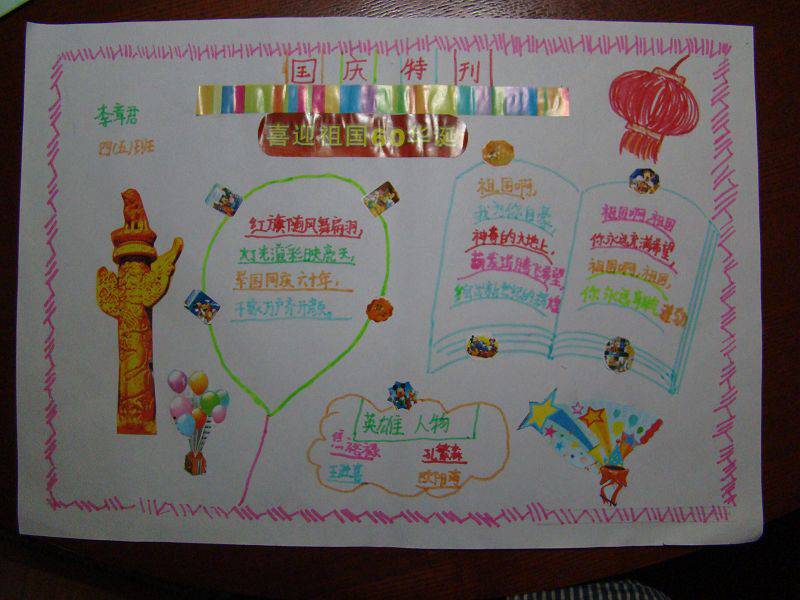 国庆特刊
喜迎祖国60华诞
李章君
四(五)班
红旗随风舞翩羽,
灯光溢彩映亮天,
举国同庆六十年,
千家万户齐开颜。
祖国啊,
我为你自豪,
神奇的大地上,
萌发沸腾
希望,
世纪的辉煌
祖国啊,祖国
你永远充满希望,
祖国啊,祖国,
你永远
英雄人物
焦裕禄
孔繁森
王进喜
欧阳海